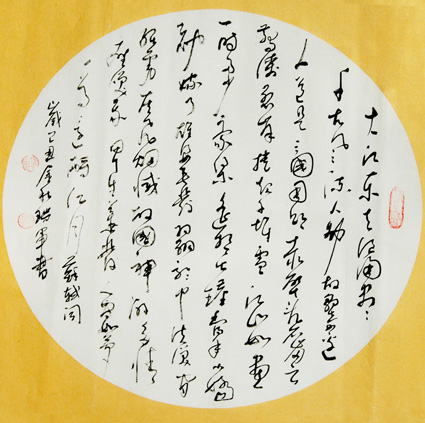 大江东去浪淘尽
千古风流人物故垒西边
人道是三國周郎赤壁乱石崩云
惊涛裂岸捲起千堆雪江山如画
一时多少豪杰遥想公瑾当年小乔
初嫁了雄姿英发羽扇纶巾谈笑间
烟灭故國神游多情
应笑我早生华发人间如梦
一尊还酹江月 苏轼词
岁己丑年秋书